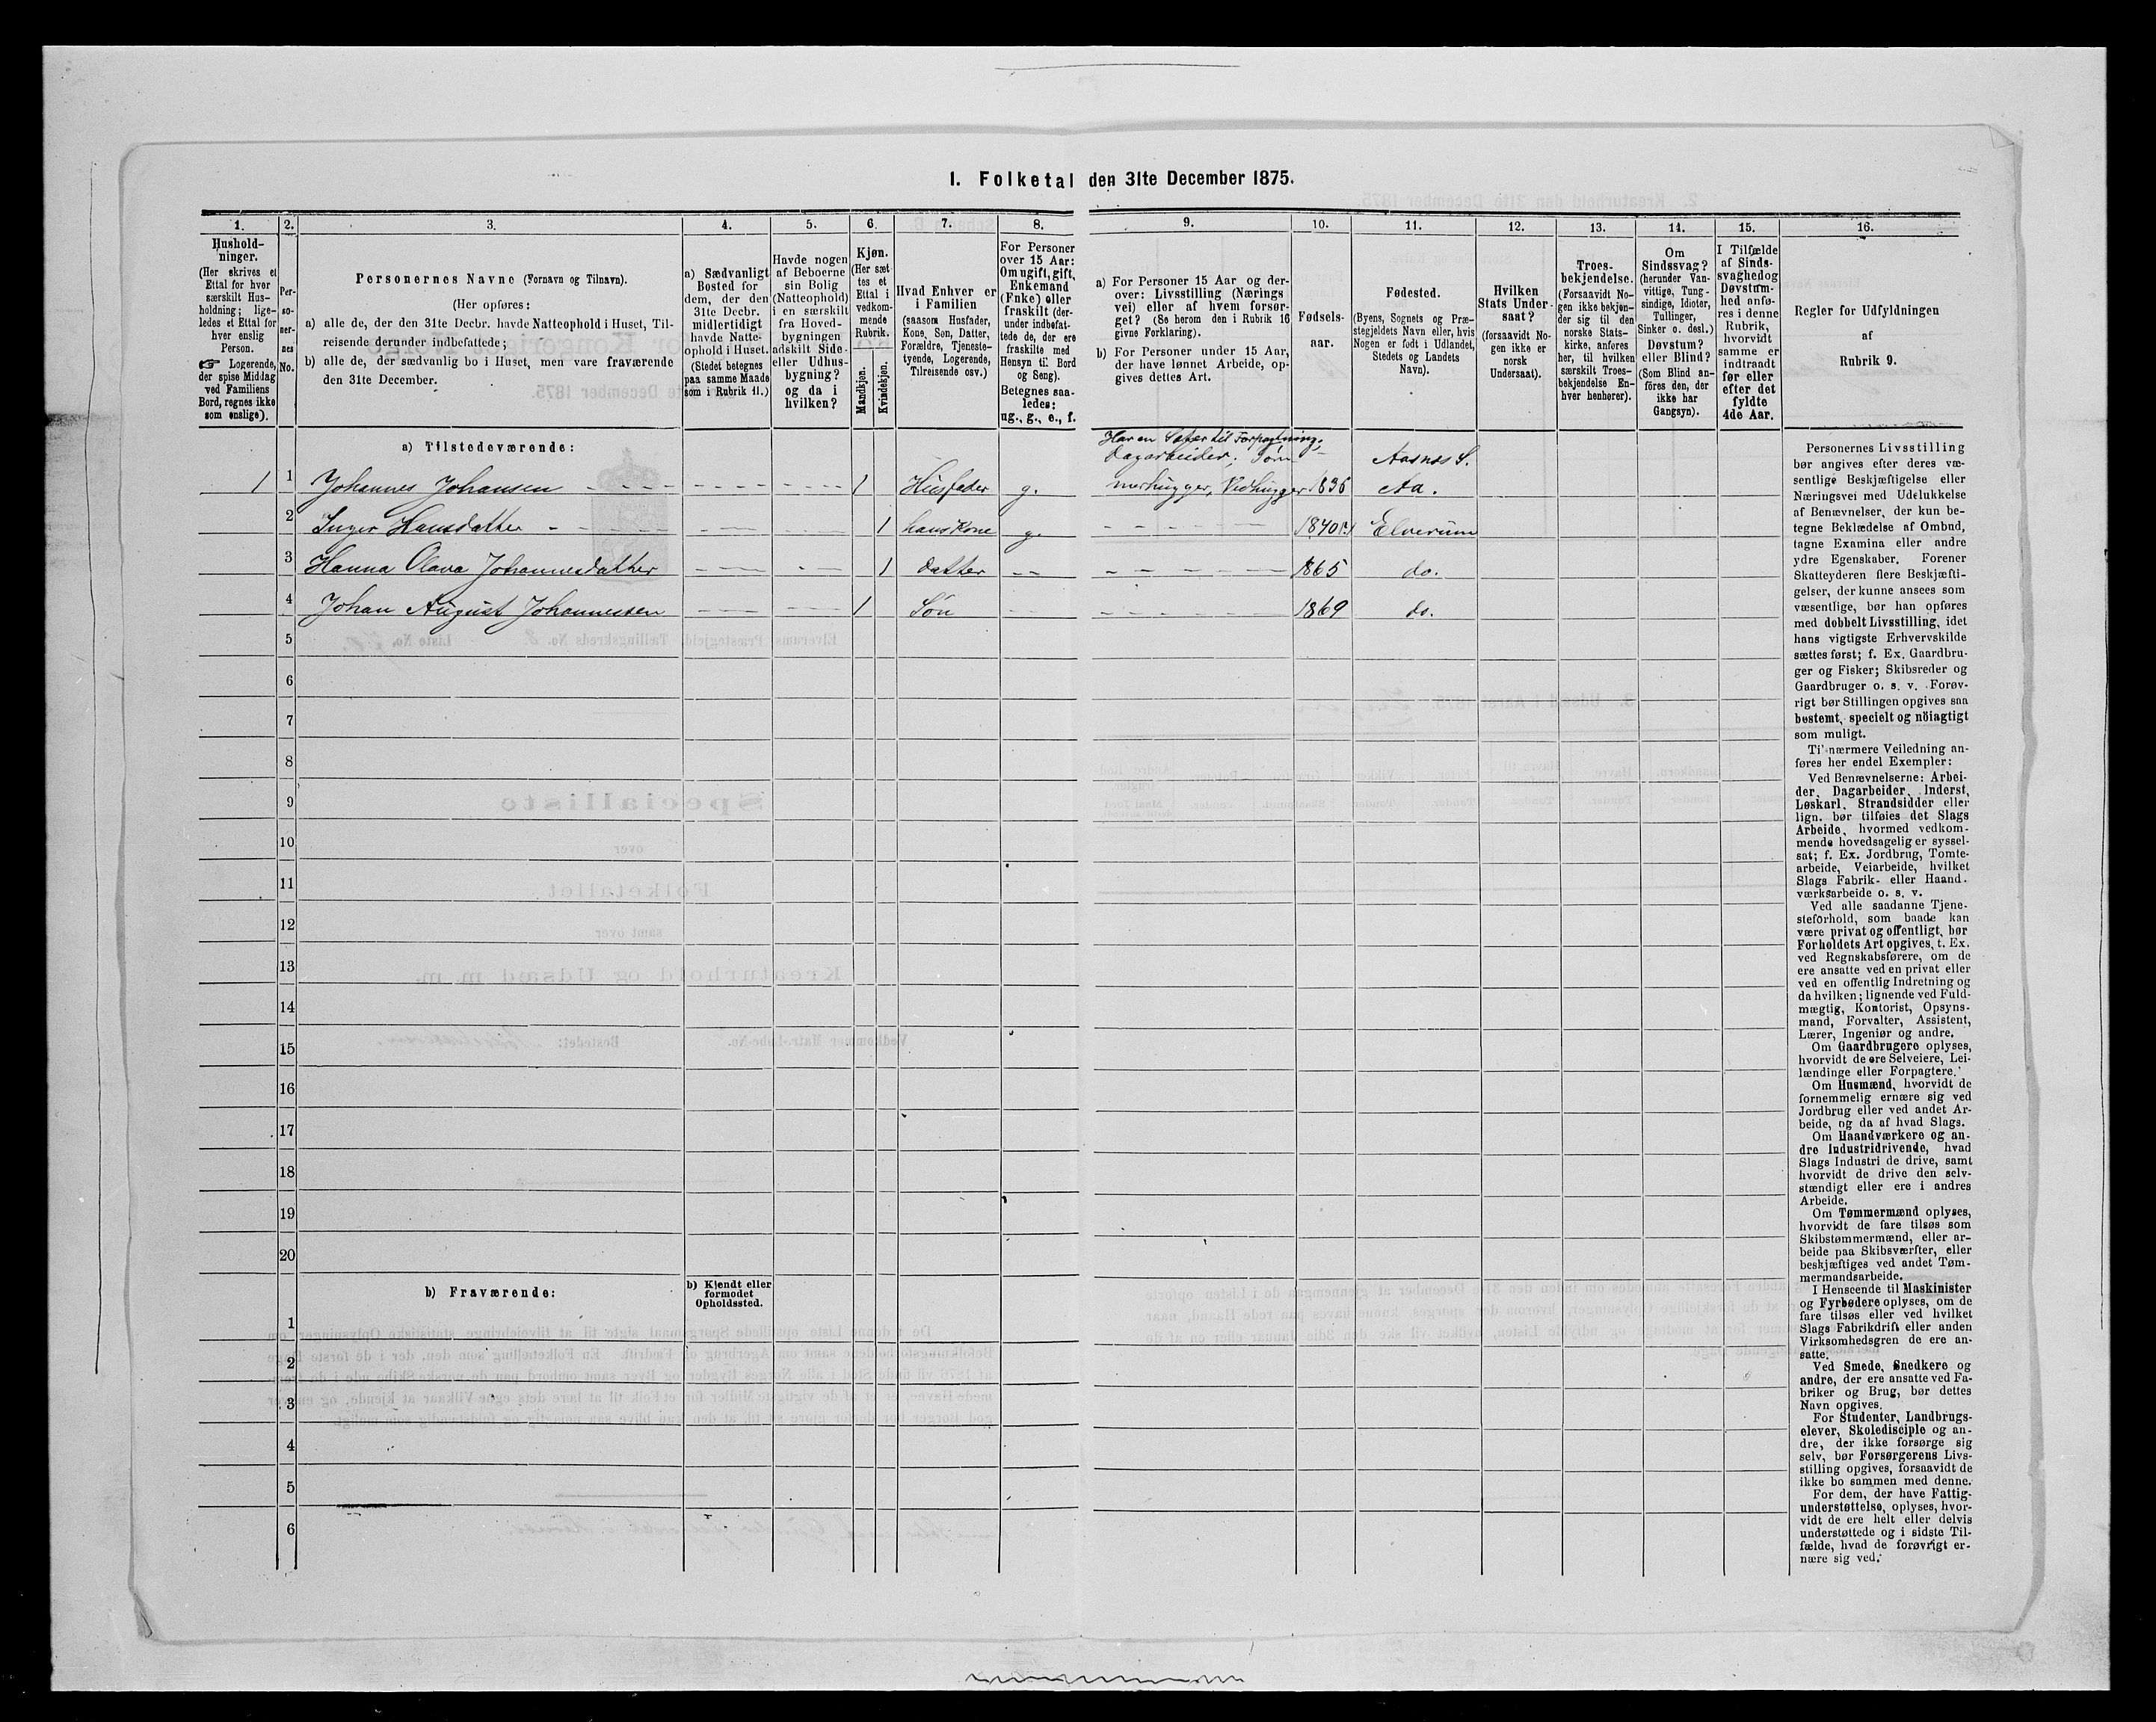 I. Folketal den 31te December 1875.
1.
Hushold-
ninger.
(Her skrives et
Ettal for hver
særskilt Hus-
holdning; lige-
ledes et Ettal for
hver enslig
Person.
☞ Logerende,
der spise Middag
ved Familiens
Bord, regnes ikke
som enslige).
2.
Per-
so-
ner-
nes
No.
3.
Personernes Navne (Fornavn og Tilnavn).
(Her opføres:
a) alle de, der den 31te Decbr. havde Natteophold i Huset, Til-
reisende derunder indbefattede;
b) alle de, der sædvanlig bo i Huset, men vare fraværende
den 31te December.
4.
a) Sædvanligt
Bosted for
dem, der den
31te Decbr.
midlertidigt
havde Natte-
ophold i Huset.
(Stedet betegnes
paa samme Maade
som i Rubrik 11.)
5.
Havde nogen
af Beboerne
sin Bolig
(Natteophold)
i en særskilt
fra Hoved-
bygningen
adskilt Side-
eller Udhus-
bygning?
og da i
hvilken?
6.
Kjøn.
(Her sæt-
tes et
Ettal i
vedkom-
mende
Rubrik.
Mandkjøn.
Kvindekjøn.
7.
Hvad Enhver er
i Familien
(saasom Husfader,
Kone, Søn, Datter,
Forældre, Tjeneste-
tyende, Logerende,
Tilreisende osv.)
8.
For Personer
over 15 Aar:
Om ugift, gift,
Enkemand
(Enke) eller
fraskilt (der-
under indbefat-
tede de, der ere
fraskilte med
Hensyn til Bord
og Seng).
Betegnes saa-
ledes:
ug., g., e., f.
9.
a) For Personer 15 Aar og der-
over: Livsstilling (Nærings
vei) eller af hvem forsør-
get? (Se herom den i Rubrik 16
givne Forklaring).
b) For Personer under 15 Aar,
der have lønnet Arbeide, op-
gives dettes Art.
10.
Fødsels-
aar.
11.
Fødested.
(Byens, Sognets og Præ-
stegjeldets Navn eller, hvis
Nogen er født i Udlandet,
Stedets og Landets
Navn).
12.
Hvilken
Stats Under-
saat?
(forsaavidt No-
gen ikke er
norsk
Undersaat).
13.
Troes-
bekjendelse.
(Forsaavidt No-
gen ikke bekjen-
der sig til den
norske Stats-
kirke, anføres
her, til hvilken
særskilt Troes-
bekjendelse En-
hver henhører).
14.
Om
Sindssvag?
(herunder Van-
vittige, Tung-
sindige, Idioter,
Tullinger,
Sinker o. desl.)
Døvstum?
eller Blind?
(Som Blind an-
føres den, der
ikke har
Gangsyn).
15.
I Tilfælde
af Sinds-
svaghed og
Døvstum-
hed anfø-
res i denne
Rubrik,
hvorvidt
samme er
indtraadt
før eller
efter det
fyldte
4de Aar.
16.
Regler for Udfyldningen
af
Rubrik 9.
a) Tilstedeværende:
Har en Sæter til Forpagtning,
Dagarbeider, Tøm-
Aasnes S.
1 1 Johannes Johansen 1 Husfader g. merhugger, Vedhugger 1836 Aa.
2 Inger Hansdatter 1 hans Kone g. 1840 Elverum
3 Hanna Olava Johannesdatter 1 Datter 1865 do.
4 Johan August Johannessen 1 Søn 1869 do.
5
6
7
8
9
10
11
12
13
14
15
16
17
18
19
20
b) Fraværende:
b) Kjendt eller
formodet
Opholdssted.
1
2
3
4
5
6
Personernes Livsstilling
bør angives efter deres væ-
sentlige Beskjæftigelse eller
Næringsvei med Udelukkelse
af Benævnelser, der kun be-
tegne Beklædelse af Ombud,
tagne Examina eller andre
ydre Egenskaber. Forener
Skatteyderen flere Beskjæfti-
gelser, der kunne ansees som
væsentlige, bør han opføres
med dobbelt Livsstilling, idet
hans vigtigste Erhvervskilde
sættes først; f. Ex. Gaardbru-
ger og Fisker; Skibsreder og
Gaardbruger o. s. v. Forøv-
rigt bør Stillingen opgives saa
bestemt, specielt og nöiagtigt
som muligt.
Til nærmere Veiledning an-
føres her endel Exempler:
Ved Benævnelserne: Arbei-
der, Dagarbeider, Inderst,
Løskarl, Strandsidder eller
lign. bør tilføies det Slags
Arbeide, hvormed vedkom-
mende hovedsagelig er syssel-
sat; f. Ex. Jordbrug, Tomte-
arbeide, Veiarbeide, hvilket
Slags Fabrik- eller Haand-
værksarbeide o. s. v.
Ved alle saadanne Tjene-
steforhold, som baade kan
være privat og offentligt, bør
Forholdets Art opgives, t. Ex.
ved Regnskabsførere, om de
ere ansatte ved en privat eller
ved en offentlig Indretning og
da hvilken; lignende ved Fuld-
mægtig, Kontorist, Opsyns-
mand, Forvalter, Assistent,
Lærer, Ingeniør og andre.
Om Gaardbrugere oplyses,
hvorvidt de ere Selveiere, Lei-
lændinge eller Forpagtere.
Om Husmænd, hvorvidt de
fornemmelig ernære sig ved
Jordbrug eller ved andet Ar-
beide, og da af hvad Slags.
Om Haandværkere og an-
dre Industridrivende, hvad
Slags Industri de drive, samt
hvorvidt de drive den selv-
stændigt eller ere i andres
Arbeide.
Om Tømmermænd oplyses,
hvorvidt de fare tilsøs som
Skibstømmermænd, eller ar-
beide paa Skibsværfter, eller
beskjæftiges ved andet Tøm-
mermandsarbeide.
I Henseende til Maskinister
og Fyrbødere oplyses, om de
fare tilsøs eller ved hvilket
Slags Fabrikdrift eller anden
Virksomhedsgren de ere an-
satte.
Ved Smede, Snedkere og
andre, der ere ansatte ved Fa-
briker og Brug, bør dettes
Navn opgives.
For Studenter, Landbrugs-
elever, Skoledisciple og an-
dre, der ikke forsørge sig
selv, bør Forsørgerens Livs-
stilling opgives, forsaavidt de
ikke bo sammen med denne.
For dem, der have Fattig-
understøttelse, oplyses, hvor-
vidt de ere helt eller delvis
understøttede og i sidste Til-
fælde, hvad de forøvrigt er-
nære sig ved.